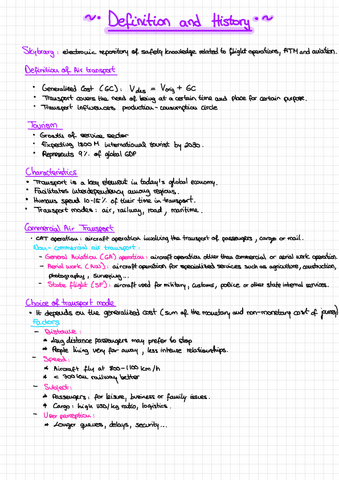 Definition and History
Skybrary: electronic repository of safety knowledge related to flight operations, ATM and aviation.
Definition of Air transport
• Generalised Cost (GC): Vdes = Vorig + GC
• Transport covers the need of being at a certain time and place for certain purpose.
• Transport influences production-consumption circle
Tourism
• Growth of service sector
• Expecting 1800 M international tourist by 2030.
• Represents 9% of global GDP
Characteristics
• Transport is a key element in today's global economy.
• Facilitates interdependency among regions.
• Humans spend 10-15% of their time in transport.
• Transport modes: air, railway, road, maritime.
Commercial Air Transport
• CAT operation: aircraft operation involving the transport of passengers, cargo or mail.
Non-commercial air transport:
- General Aviation (GA) operation: aircraft operation other than commercial or aerial work operation.
- Aerial work (AW): aircraft operation for specialised services such as agriculture, construction,
photography, surveying...
- State flight (SF): aircraft used for military, customs, police or other state internal services.
Choice of transport mode
• It depends on the generalised cost (sum of the monetary and non-monetary cost of journey)
Factors
- Distance:
* Long distance passengers may prefer to stop
* People living very far away, less intense relationships.
- Speed:
* Aircraft fly at 800-1100 km/h
* < 300 km railway better
- Subject:
* Passengers: for leisure, business or family issues.
* Cargo: high USD/kg ratio, logistics.
- User perception:
* Longer queues, delays, security...